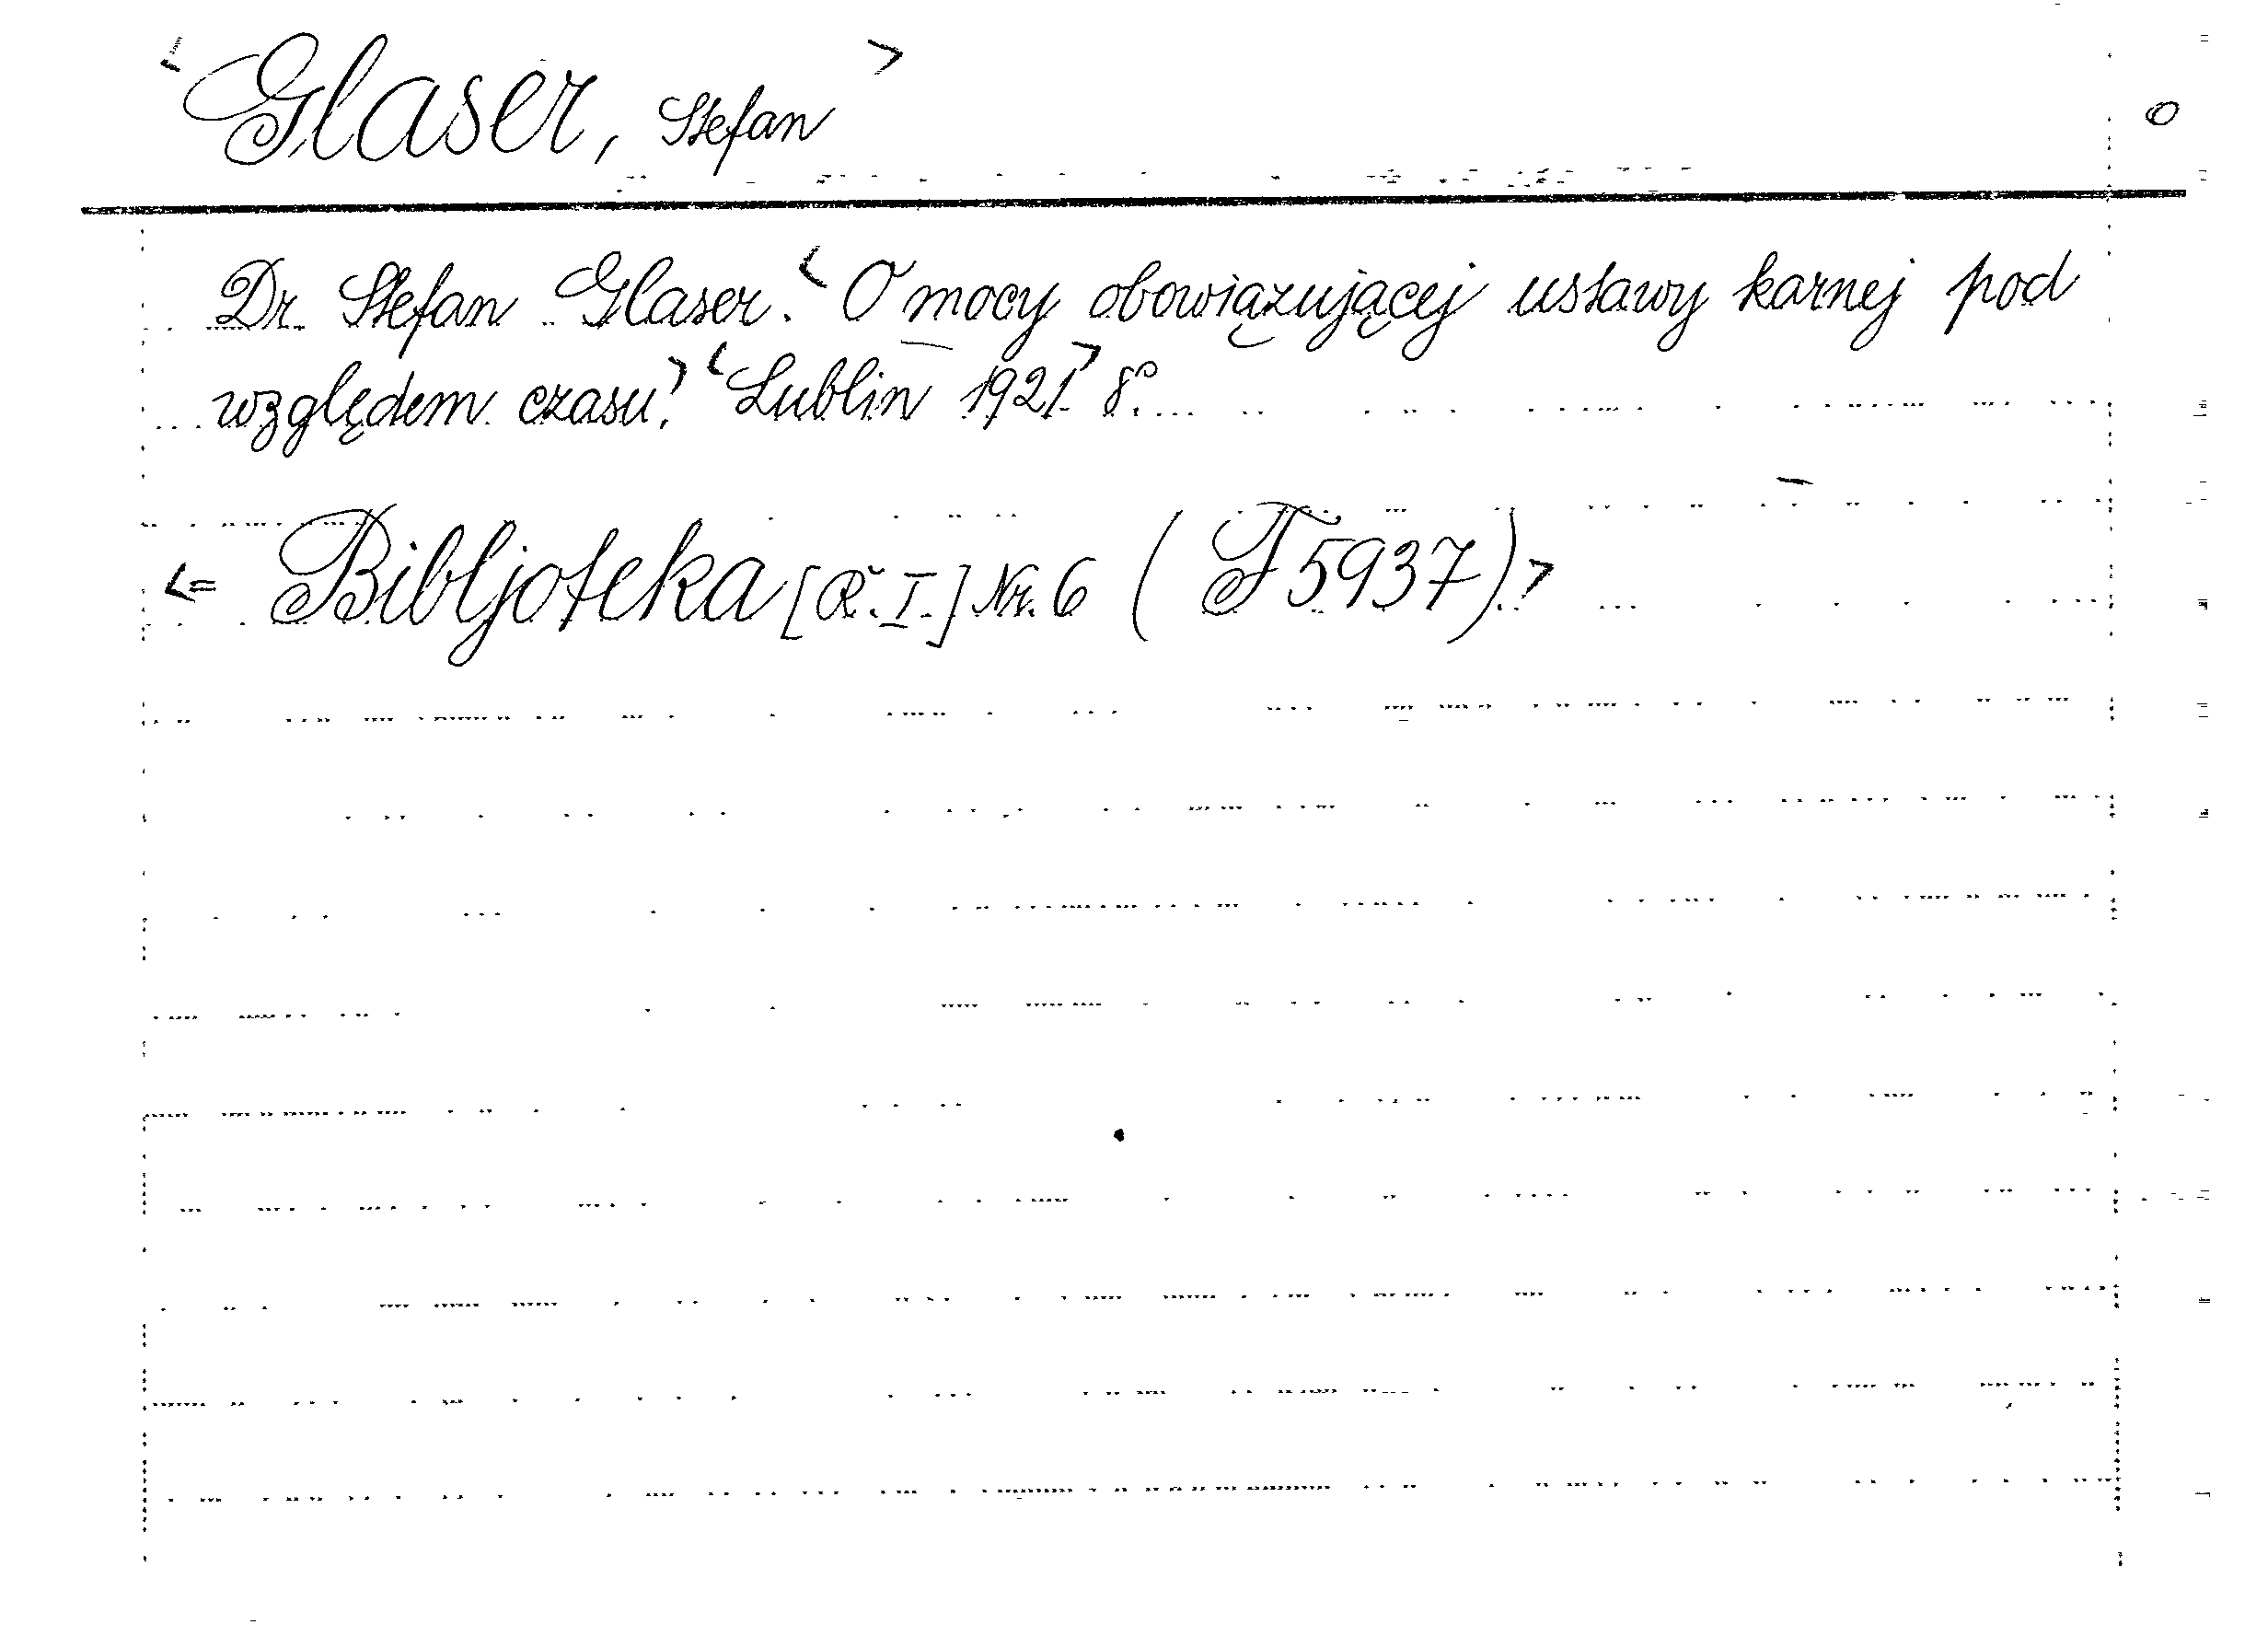 <Glaser, Stefan> O
Dr. Stefan Glaser. <O mocy obowiązującej ustawy karnej pod
względem czasu.> <Lublin 1921> 8°.
<= Bibljoteka [R. I.] Nr. 6 (T 5937).>